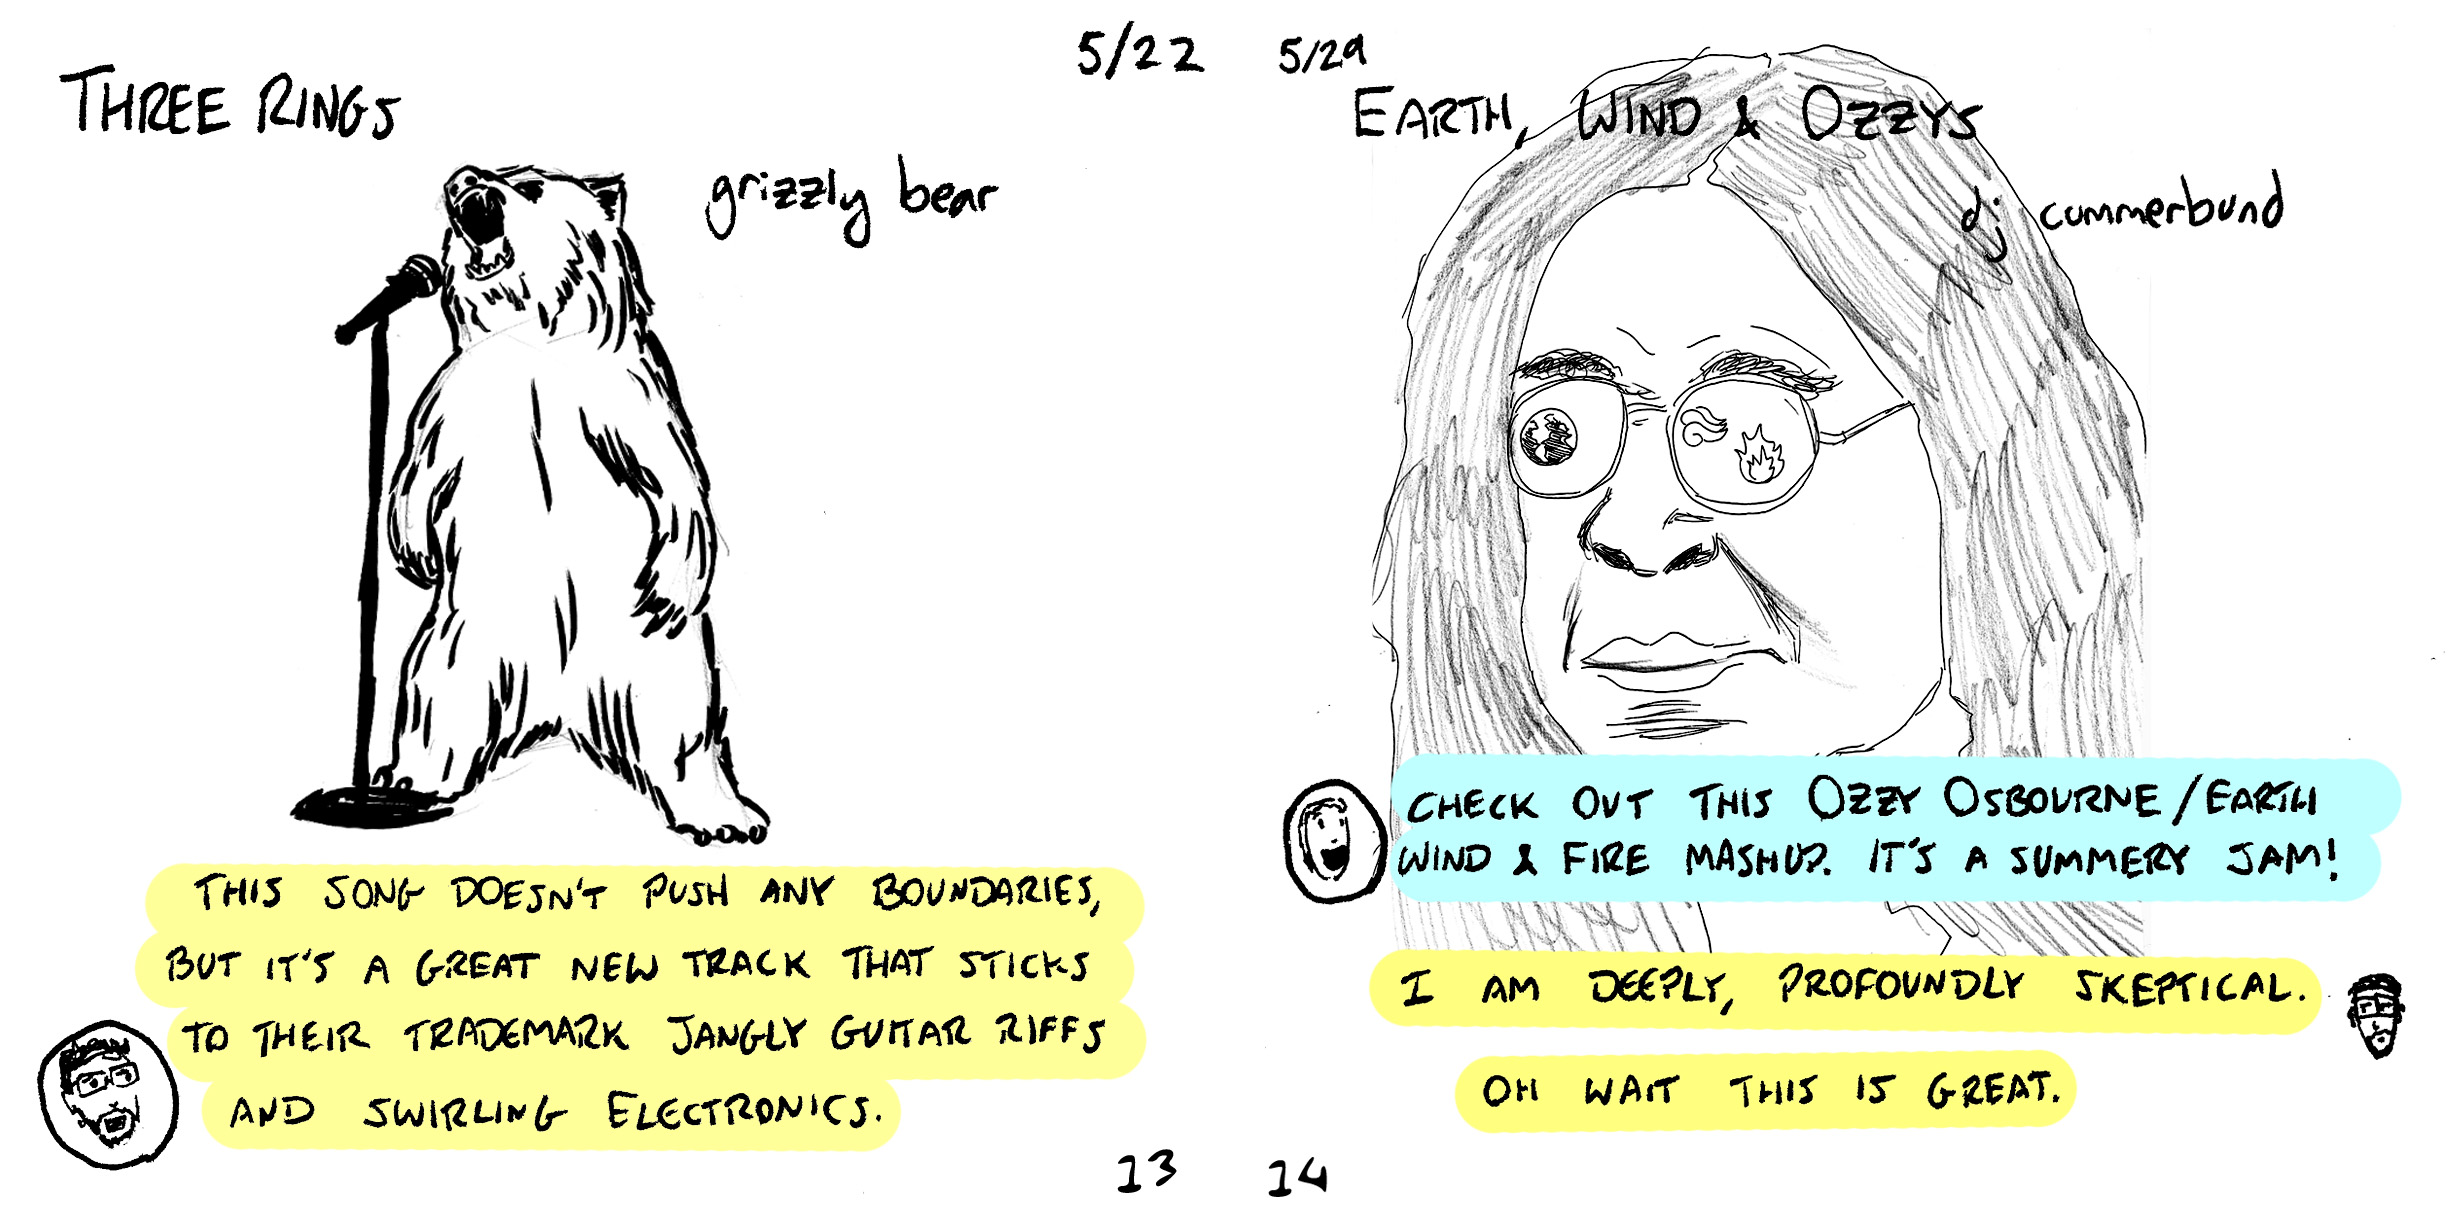 5/22
THREE RINGS
grizzly bear
THIS SONG DOESN'T PUSH ANY BOUNDARIES,
BUT IT'S A GREAT NEW TRACK THAT STICKS
TO THEIR TRADEMARK JANGLY GUITAR RIFFS
AND SWIRLING ELECTRONICS.
13
5/29
EARTH, WIND & OZZYS
dj cummerbund
CHECK OUT THIS OZZY OSBOURNE/EARTH
WIND & FIRE MASHUP. IT'S A SUMMERY JAM!
I AM DEEPLY, PROFOUNDLY SKEPTICAL.
OH WAIT THIS IS GREAT.
14